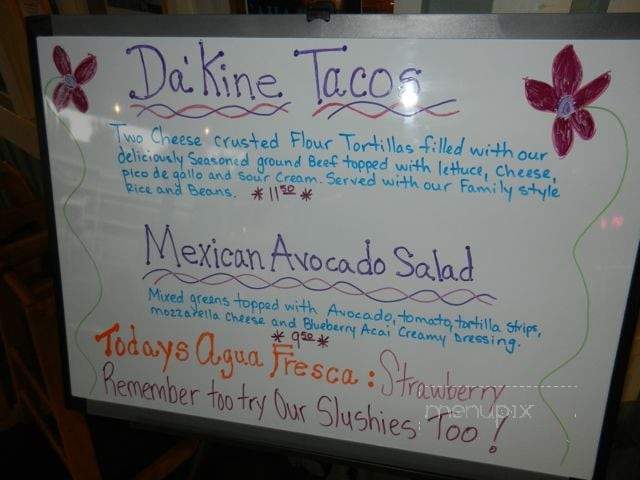 Da'Kine Tacos
Two Cheese crusted Flour Tortillas filled with our
deliciously seasoned ground Beef topped with lettuce, cheese,
pico de gallo and sour cream. Served with our Family style
Rice and Beans. * 11 50 *
Mexican Avocado Salad
Mixed greens topped with Avocado, tomato, tortilla strips,
mozzarella cheese and Blueberry Acai Creamy Dressing.
* 9 50 *
Todays Agua Fresca: Strawberry
Remember too try Our Slushies Too!
menupix